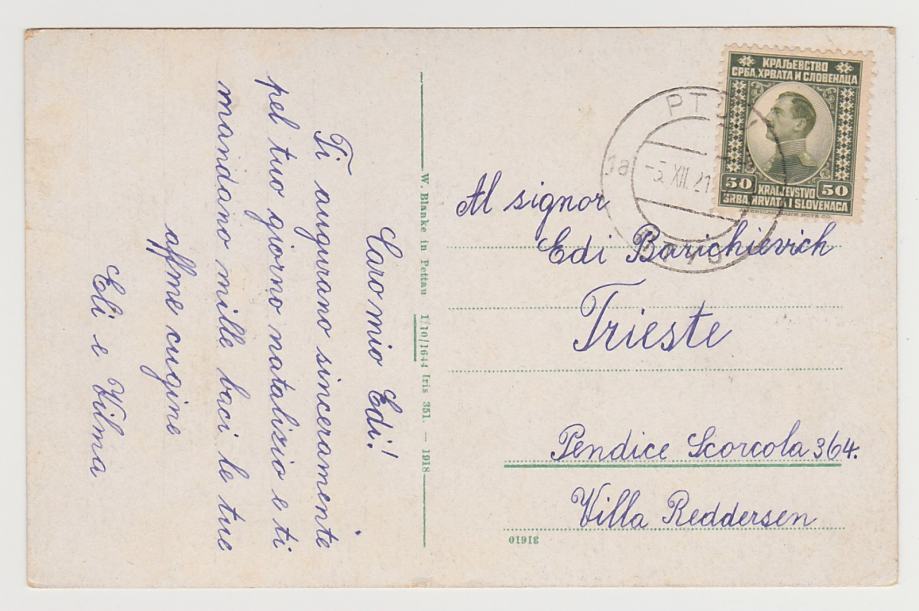 Caro mio Edi!
Ti augurano sinceramente
pel tuo giorno natalizio e ti
mandano mille baci le tue
affme cugine
Eli e Vilma
W. Blanke in Pettau 1/10/1644 Iris 351. – 1918
КРАЉЕВСТВО
СРБА, ХРВАТА И СЛОВЕНАЦА
50 KRALJEVSTVO 50
SRBA, HRVATA I SLOVENACA
PTUJ
1a
-5.XII.21
Al signor
Edi Barichievich
Trieste
Pendice Scorcola 364.
Villa Reddersen
31610